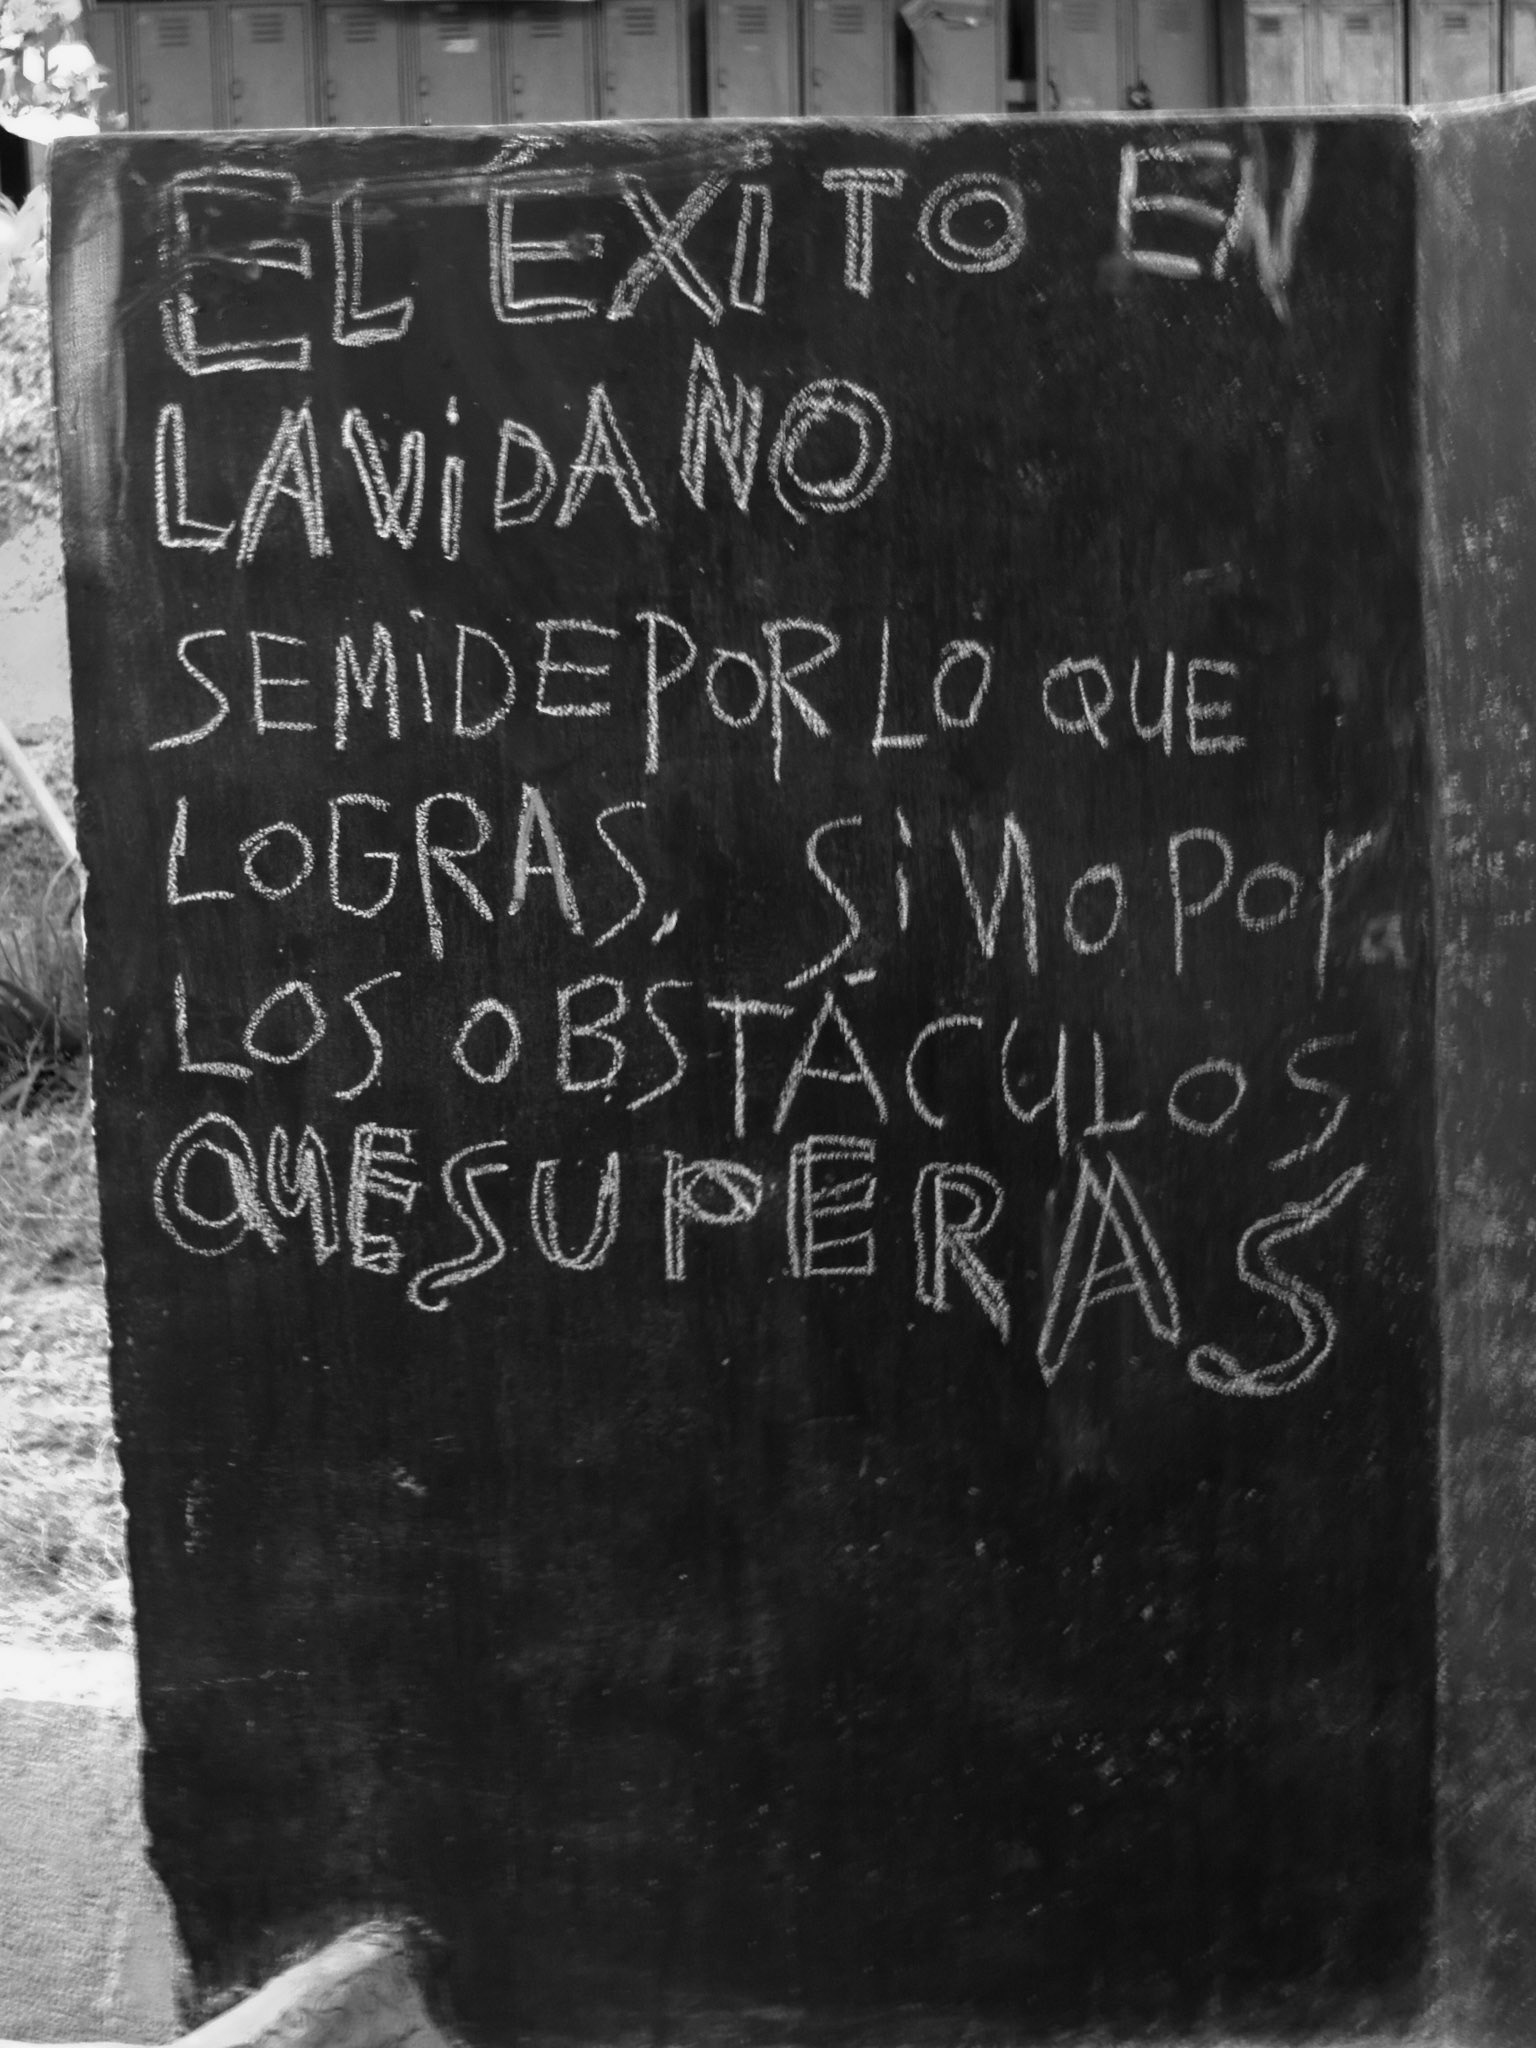 EL ÉXiTO EN
LA ViDA NO
SE MiDE POR LO QUE
LOGRAS, SiNO POr
LOS OBSTÁCULOS
QUE SUPERAS